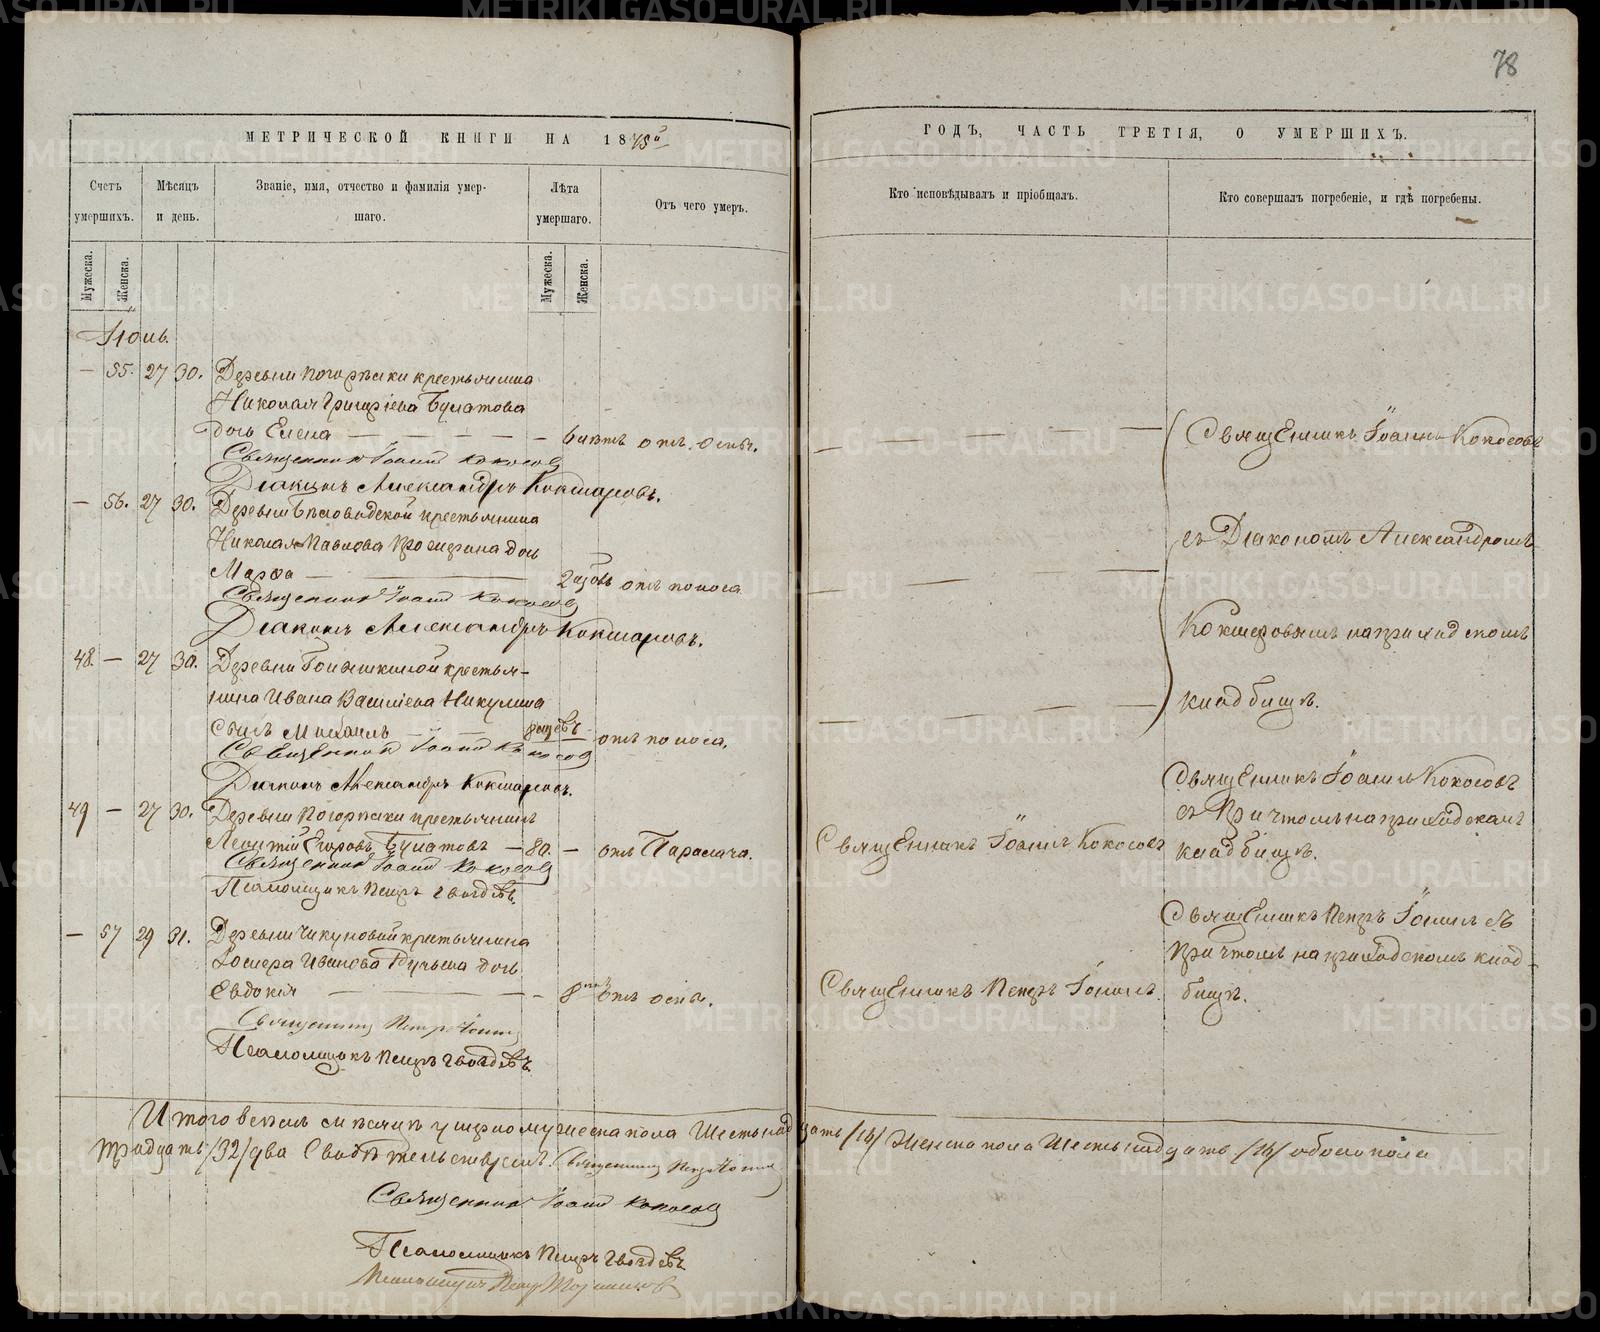 78
МЕТРИЧЕСКОЙ КНИГИ НА 1878й
ГОДЪ, ЧАСТЬ ТРЕТІЯ, О УМЕРШИХЪ.
Счетъ умершихъ.
Мѣсяцъ и день.
Званіе, имя, отчество и фамилія умер-
шаго.
Лѣта умершаго.
Отъ чего умеръ.
Кто исповѣдывалъ и пріобщалъ.
Кто совершалъ погребеніе, и гдѣ погребены.
Мужеска.
Женска.
Мужеска.
Женска.
– 55. 27 30. Деревни Погорѣлки крестьянина
Николая Григоріева Булатова
дочь Елена – – – – – 6 лѣтъ отъ оспы.
Священникъ Іоаннъ Кокосовъ
Діаконъ Александръ Кокшаровъ.
– 56. 27 30. Деревни крестьянина
Николая Павлова дочь
Марѳа – – отъ поноса
Священникъ Іоаннъ Кокосовъ
Діаконъ Александръ Кокшаровъ.
48. – 27 30. Деревни крестья-
нина Ивана Василіева Никулина
сынъ Михаилъ – – отъ поноса.
Священникъ Іоаннъ Кокосовъ
Діаконъ Александръ Кокшаровъ.
49 – 27 30. Деревни Погорѣлки крестьянинъ
Леонтій Егоровъ Булатовъ – 80. – отъ Паралича.
Священникъ Іоаннъ Кокосовъ
Псаломщикъ Петръ Гвоздевъ.
– 57 29 31. Деревни Чикуновой крестьянина
Иванова дочь
Евдокія – – отъ оспы.
Священникъ Петръ
Псаломщикъ Петръ Гвоздевъ.
Священникъ Іоаннъ Кокосовъ
съ Діакономъ Александромъ
Кокшаровымъ на приходскомъ
кладбищѣ.
Священникъ Іоаннъ Кокосовъ
Священникъ Іоаннъ Кокосовъ
съ Причтомъ на приходскомъ
кладбищѣ.
Священникъ Петръ
Священникъ Петръ съ
Причтомъ на приходскомъ клад-
бищѣ.
Итого въ мѣсяцѣ умерло мужеска пола Шестьнадцать /16/ Женска пола Шестьнадцать /16/ обоего пола
тридцать /32/ два Свидѣтельствуемъ: Священникъ Петръ
Священникъ Іоаннъ Кокосовъ
Псаломщикъ Петръ Гвоздевъ
Псаломщикъ Петръ
METRIKI.GASO-URAL.RU